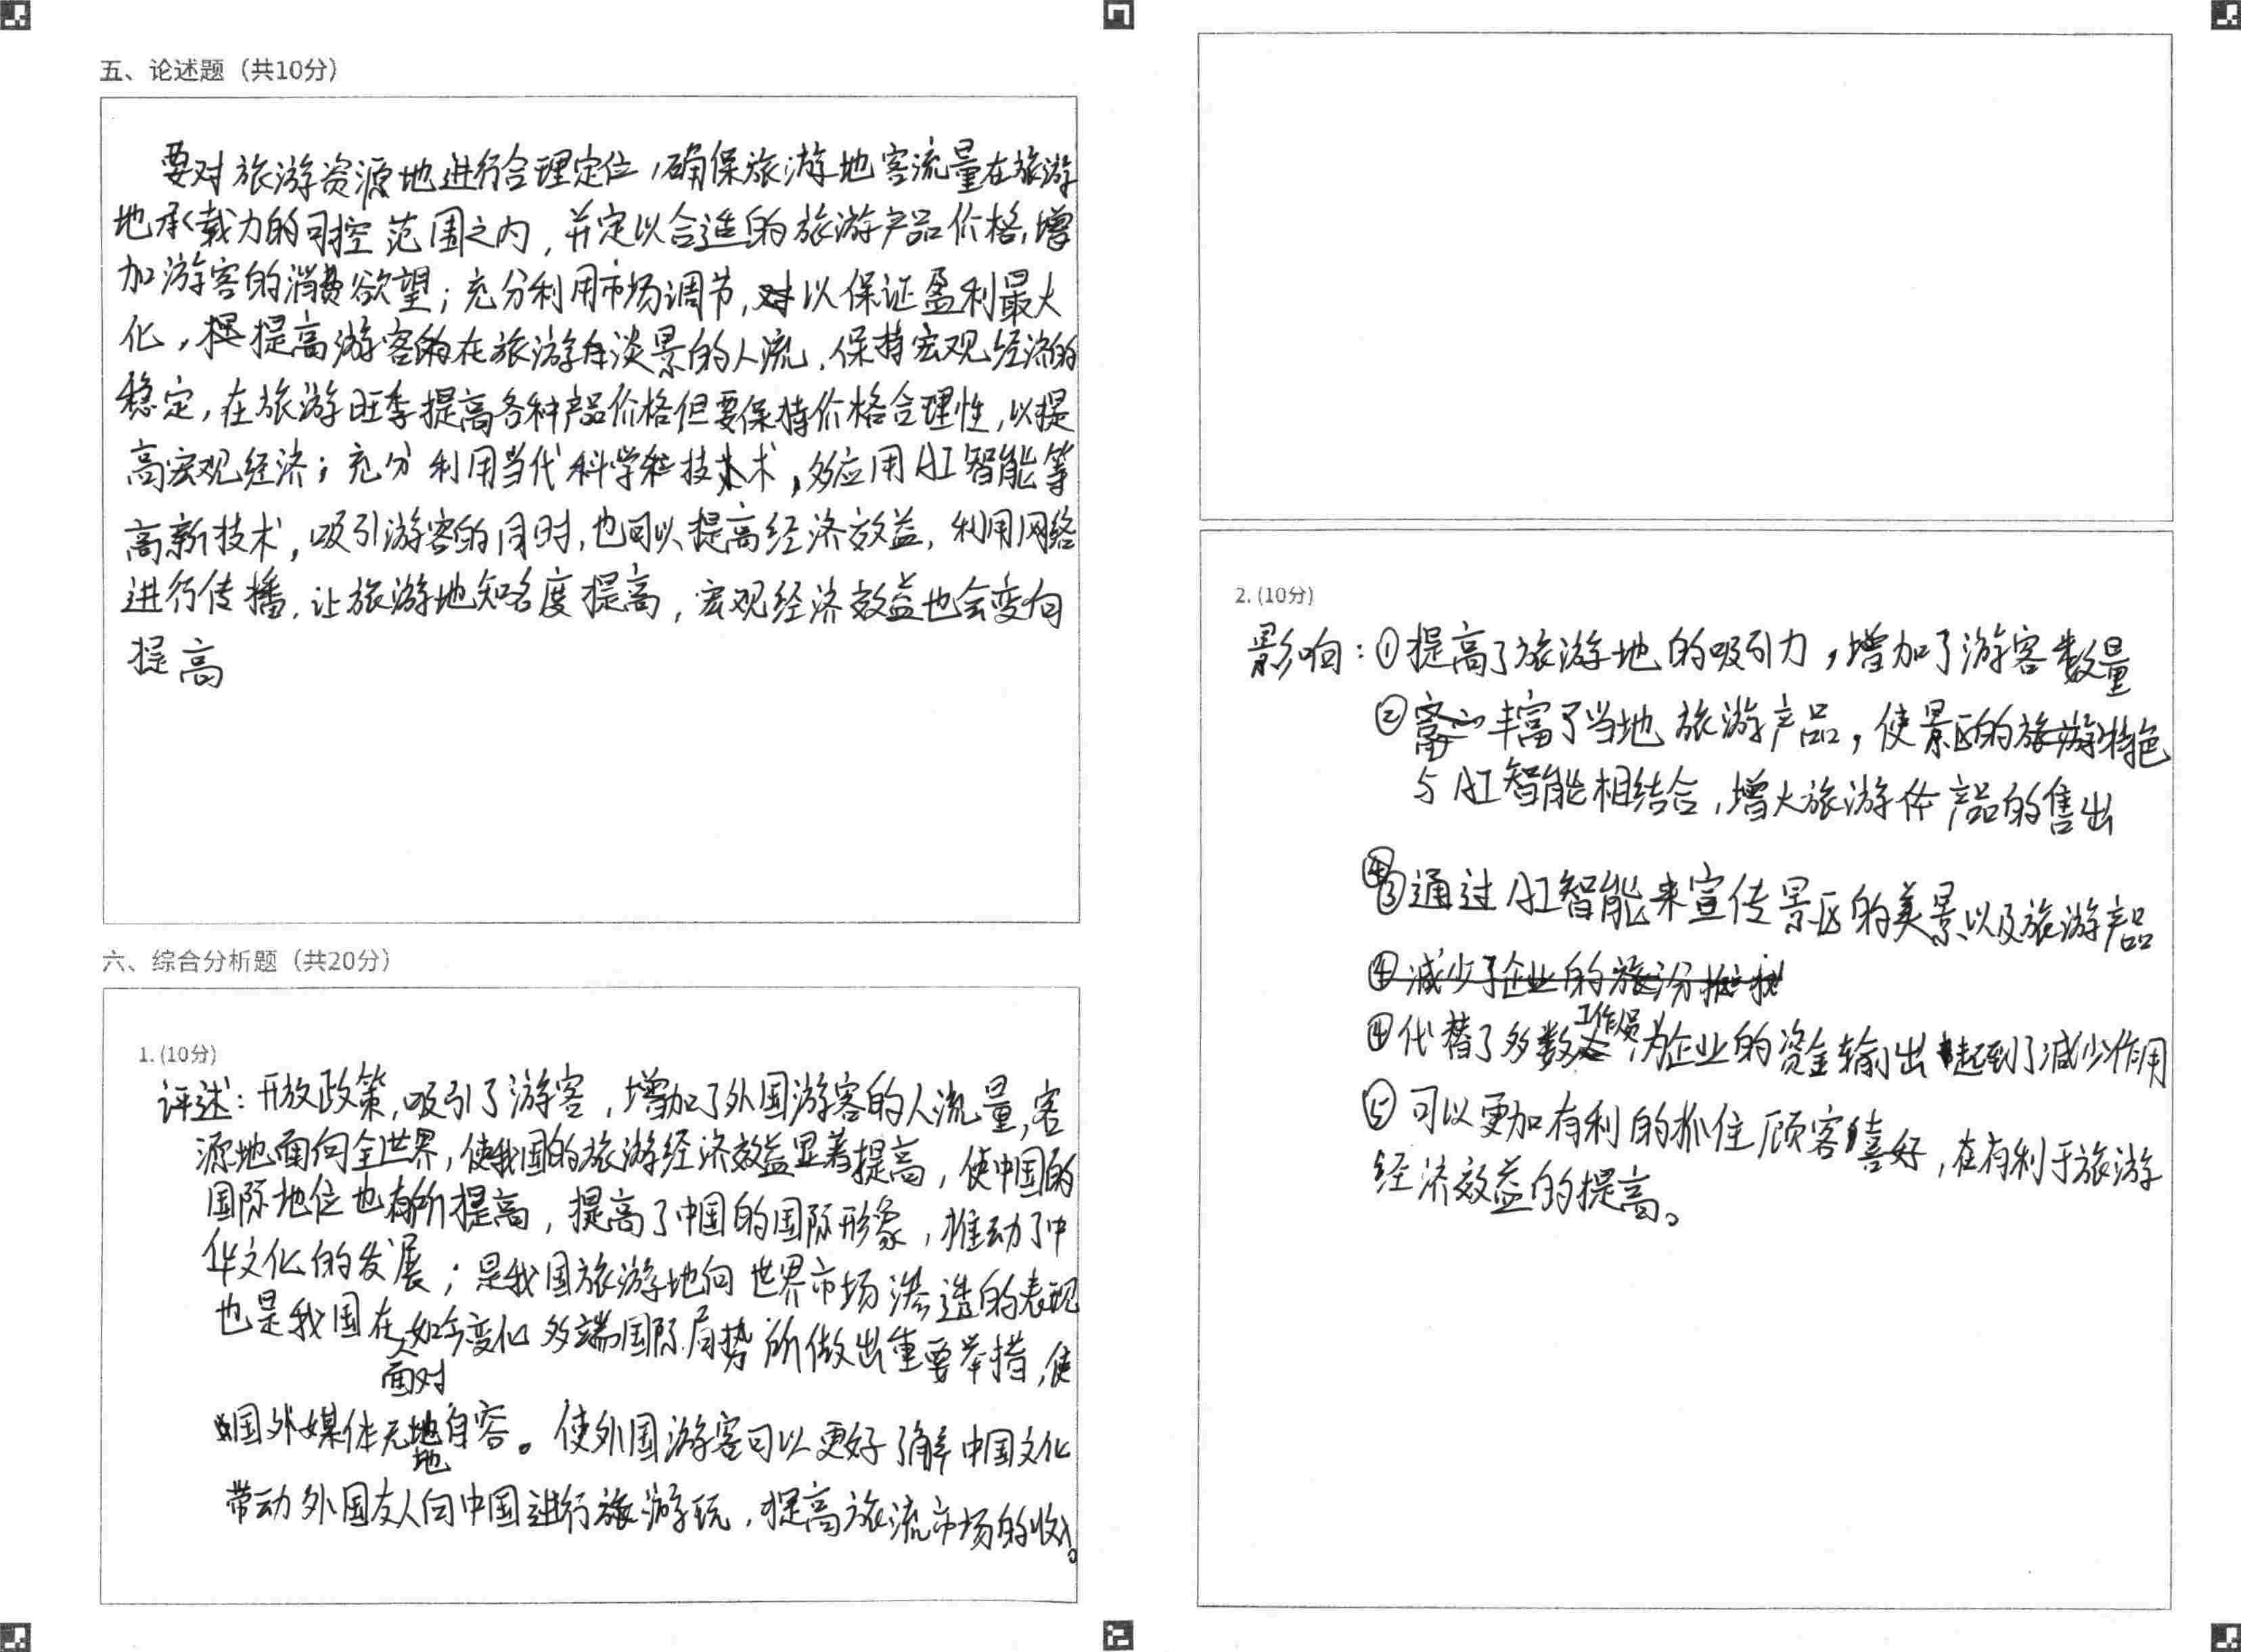 五、论述题（共10分）
要对旅游资源地进行合理定位，确保旅游地客流量在旅游
地承载力的可控范围之内，并定以合适的旅游产品价格，增
加游客的消费欲望；充分利用市场调节，以保证盈利最大
化，提高游客在旅游淡景的人流，保持宏观经济的
稳定，在旅游旺季提高各种产品价格但要保持价格合理性，以提
高宏观经济；充分利用当代科学和技术，多应用AI智能等
高新技术，吸引游客的同时，也可以提高经济效益，利用网络
进行传播，让旅游地知名度提高，宏观经济效益也会变向
提高
六、综合分析题（共20分）
1. (10分)
评述：开放政策，吸引了游客，增加了外国游客的人流量，客
源地面向全世界，使我国的旅游经济效益显著提高，使中国的
国际地位也有所提高，提高了中国的国际形象，推动了中
华文化的发展；是我国旅游地向世界市场渗透的表现
也是我国在面对如今变化多端国际局势所做出重要举措，使
国外媒体无地自容。使外国游客可以更好了解中国文化
带动外国友人向中国进行旅游玩，提高旅流市场的收入。
2. (10分)
影响：①提高了旅游地的吸引力，增加了游客数量
②丰富了当地旅游产品，使景区的特色
与AI智能相结合，增大旅游产品的售出
③通过AI智能来宣传景区的美景以及旅游产品
④代替了多数工作员为企业的资金输出起到了减少作用
⑤可以更加有利的抓住顾客喜好，在有利于旅游
经济效益的提高。